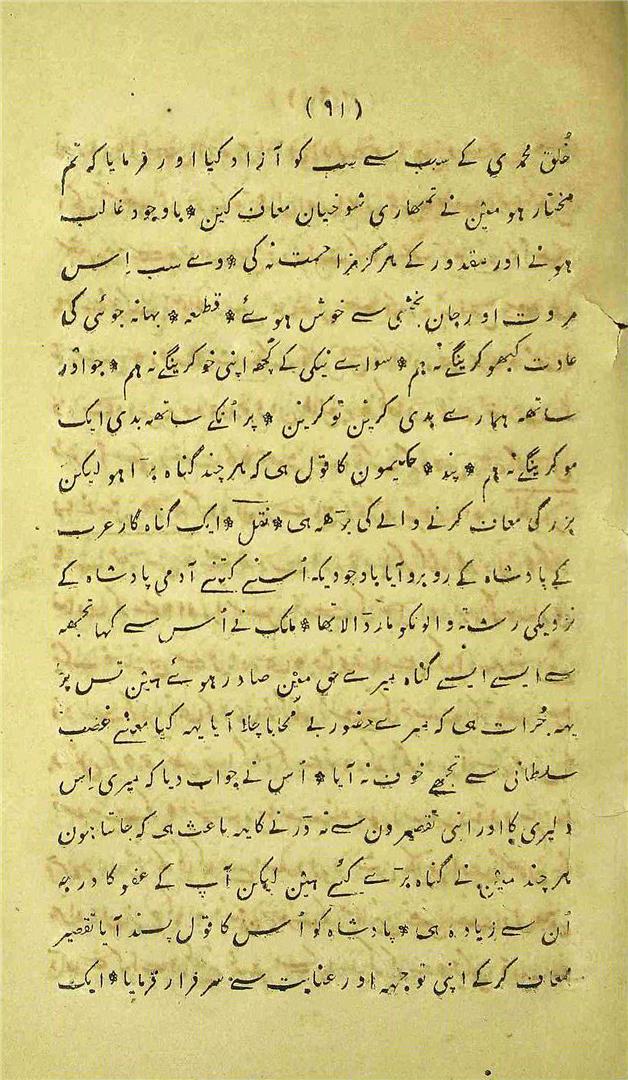 (۹۱)
خُلق محمدی کے سبب سے سب کو آزاد کیا اور فرمایا کہ تم
مختار ہو مین نے تمھاری شوخیان معاف کین * باوجود غالب
ہونے اور مقدور کے ہرگز مزاحمت نہ کی * وے سب اِس
مروت اور جان بخشی سے خوش ہوئے * قطعہ * بہانہ جوئی کی
عادت کبھو کرینگے نہ ہم * سواے نیکی کے کچھ اپنی خو کرینگے نہ ہم * جو اَور
ساتھہ ہمارے بدی کرین تو کرین * پر اُنکے ساتھہ بدی ایک
مو کرینگے نہ ہم * پند * حکیمون کا قول ہی کہ ہر چند گناہ بڑا ہو لیکن
بزرگی معاف کرنے والے کی بڑھہ ہی * نقل * ایک گناہ گار عرب
کے پادشاہ کے رو برو آیا باوجودیکہ اُسنے کتنے آدمی پادشاہ کے
نزدیکی رشتہ والونکو مار ڈالا تھا * ملک نے اُس سے کہا تجھہ
سے ایسے ایسے گناہ میرے حق مین صادر ہوئے ہین تس پر
یہہ جُرات ہی کہ میرے حضور بے مُحابا چلا آیا یہہ کیا معنے غضب
سلطانی سے تجھے خوف نہ آیا * اُس نے جواب دیا کہ میری اِس
دلیری کا اور اپنی تقصیرون سے نہ ڈرنے کا یہہ باعث ہی کہ جانتا ہون
ہر چند مین نے گناہ بڑے کئے ہین لیکن آپ کے عفو کا درجہ
اُن سے زیادہ ہی * پادشاہ کو اُس کا قول پسند آیا تقصیر
معاف کر کے اپنی توجہہ اور عنایت سے سرفراز فرمایا * ایک